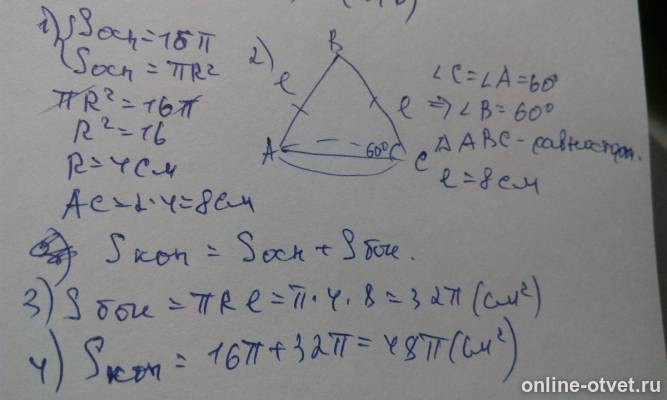 1) { Sосн = 16π
Sосн = πR²
πR² = 16π
R² = 16
R = 4см
AC = 2·4 = 8см
2)
B
ℓ
ℓ
A
60°
C
∠C = ∠A = 60°
⇒ ∠B = 60°
Δ ABC - равностор.
ℓ = 8см
Sкон = Sосн + Sбок.
3) Sбок = πRℓ = π·4·8 = 32π (см²)
4) Sкон = 16π + 32π = 48π (см²)
online-otvet.ru